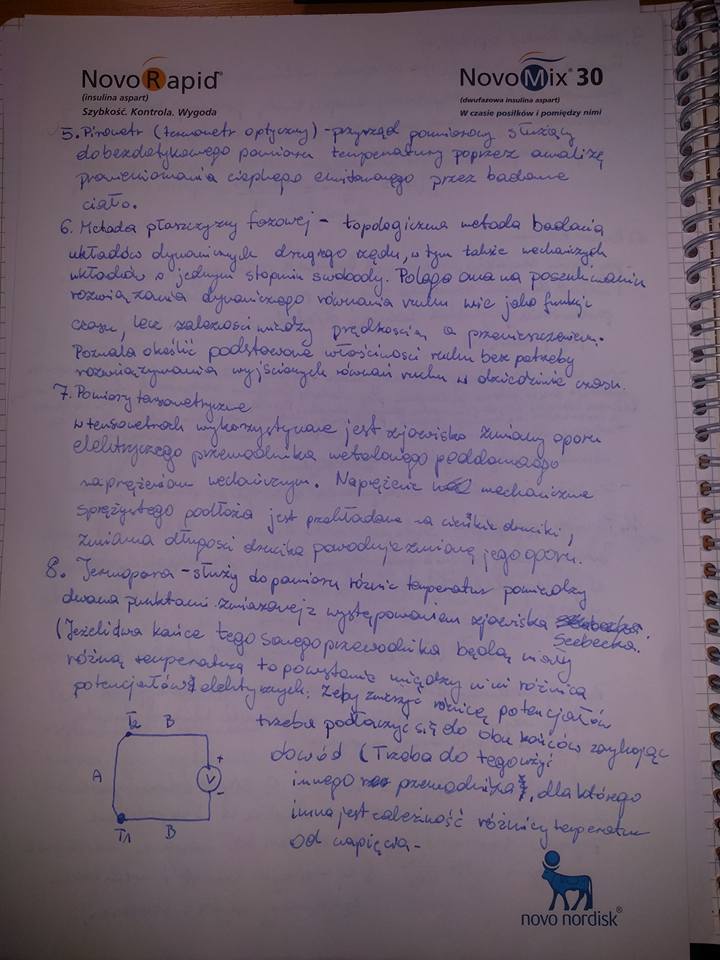 NovoRapid®
(insulina aspart)
Szybkość. Kontrola. Wygoda
NovoMix® 30
(dwufazowa insulina aspart)
W czasie posiłków i pomiędzy nimi
5. Pirometr (termometr optyczny) - przyrząd pomiarowy służący
do bezdotykowego pomiaru temperatury poprzez analizę
promieniowania cieplnego emitowanego przez badane
ciało.
6. Metoda płaszczyzny fazowej - topologiczna metoda badania
układów dynamicznych drugiego rzędu, w tym także mechanicznych
układów o jednym stopniu swobody. Polega ona na poszukiwaniu
rozwiązania dynamicznego równania ruchu nie jako funkcji
czasu, lecz zależności między prędkością a przemieszczeniem.
Pozwala określić podstawowe właściwości ruchu bez potrzeby
rozwiązywania wyjściowych równań ruchu w dziedzinie czasu.
7. Pomiary tensometryczne
w tensometrach wykorzystywane jest zjawisko zmiany oporu
elektrycznego przewodnika metalowego poddanego
naprężeniom mechanicznym. Naprężenie mechaniczne
sprężystego podłoża jest przekładane na cienkie druciki,
zmiana długości drucika powoduje zmianę jego oporu.
8. Termopara - służy do pomiaru różnic temperatur pomiędzy
dwoma punktami związanej z występowaniem zjawiska
Seebecka.
(Jeżeli dwa końce tego samego przewodnika będą miały
różną temperaturę to powstanie między nimi różnica
potencjałów elektrycznych. Żeby zmierzyć różnicę potencjałów
trzeba podłączyć się do obu końców zamykając
obwód (Trzeba do tego użyć
innego przewodnika, dla którego
inna jest zależność różnicy temperatur
od napięcia -
T2 B
A V + -
T1 B
novo nordisk®